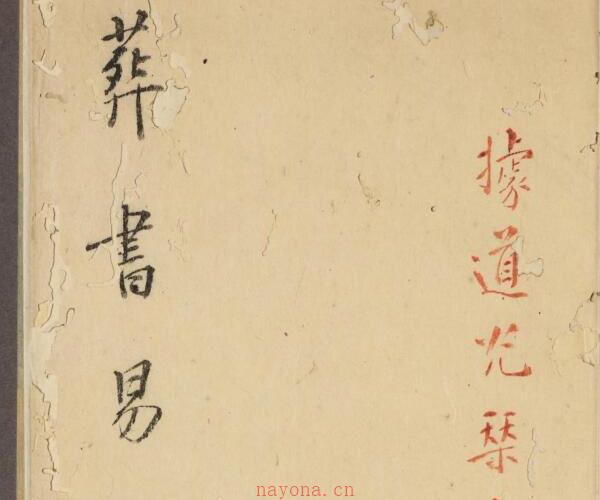 據道光栞
葬書易
nayona.cn